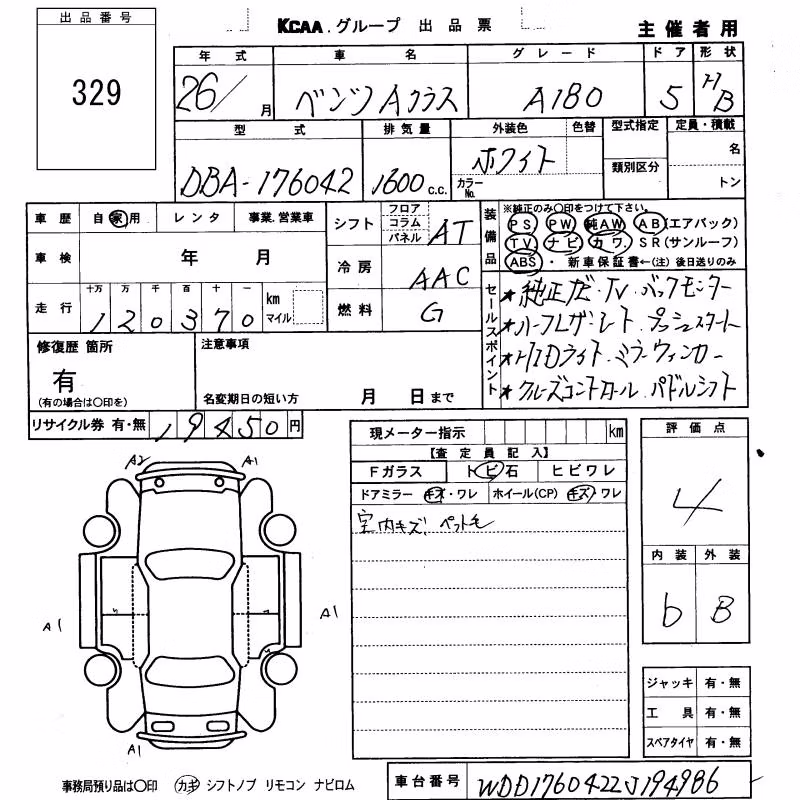 出品番号
329
KCAA.グループ 出品票
主催者用
年式 車名 グレード ドア 形状
26/ 月 ベンツ Aクラス A180 5 H/B
型式 排気量 外装色 色替 型式指定 定員・積載
DBA-176042 1600c.c. ホワイト カラーNo. 類別区分 名 トン
車歴 自家用 レンタ 事業.営業車
車検 年 月
走行 十万 万 千 百 十 一 km マイル
120370
シフト フロア コラム パネル AT
冷房 AAC
燃料 G
装備品 ※純正のみ○印をつけて下さい。
PS PW 純AW AB(エアバック)
TV ナビ カワ SR(サンルーフ)
ABS・新車保証書←(注)後日送りのみ
セールスポイント
★純正ナビ・TV.バックモニター
★ハーフレザーシート プッシュスタート
★HIDライト.ミラーウィンカー
★クルーズコントロール.パドルシフト
修復歴 箇所
有
(有の場合は○印を)
注意事項
名変期日の短い方 月 日まで
リサイクル券 有・無 19450円
現メーター指示 km
【査定員記入】
Fガラス トビ石 ヒビワレ
ドアミラー キズ・ワレ ホイール(CP) キズ・ワレ
室内キズ、ペット毛
評価点
4
内装 外装
b B
A2 A1
A1 A1
A1
ジャッキ 有・無
工具 有・無
スペアタイヤ 有・無
事務局預り品は○印 カギ シフトノブ リモコン ナビロム
車台番号 WDD1760422J194986